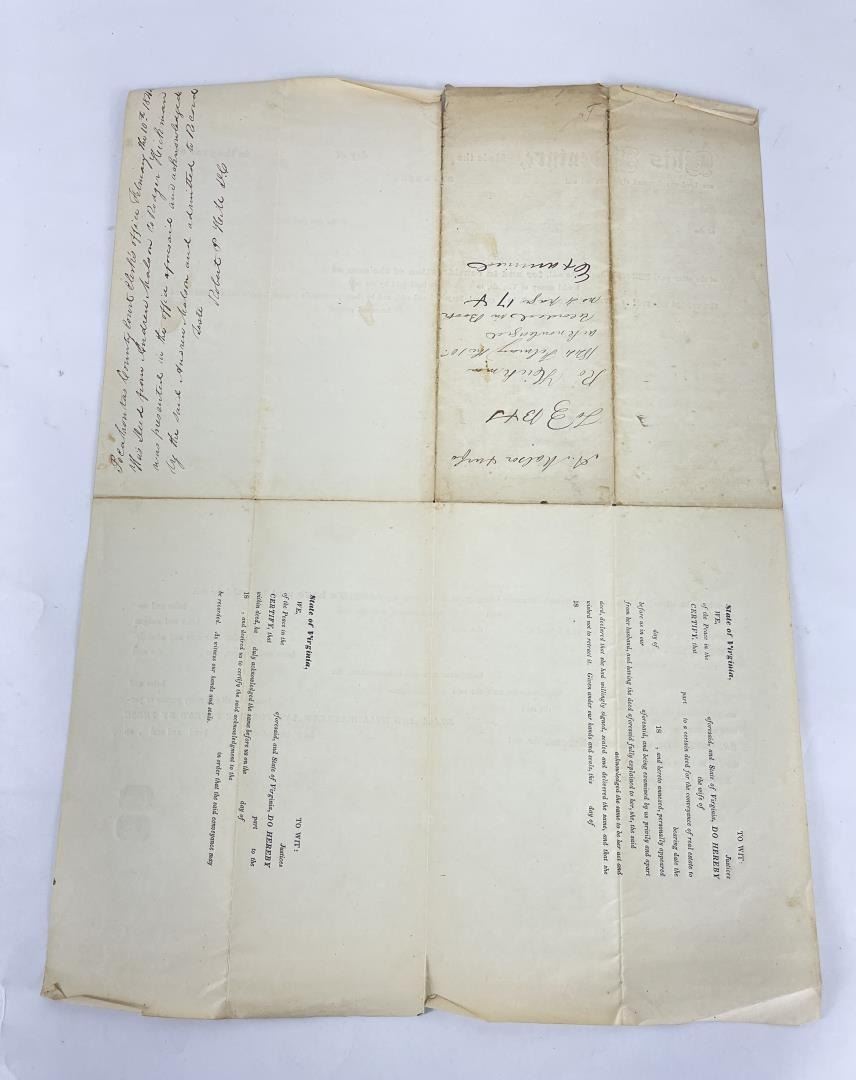 Pocahontas County Court Clerk's office February the 10th 184
this deed from Andrew Matson to Rodger Hickman
was presented in the office aforesaid and acknowledged
by the said Andrew Matson and admitted to Record
Teste Robert P
A. Matson
To B & S
Ro Hickman
February the 10th
acknowledged
Recorded in Book
No 4 page 174
Examined
This Indenture, Made the
State of Virginia, TO WIT:
WE, Justices
of the Peace in the aforesaid, and State of Virginia, DO HEREBY
CERTIFY, that the wife of
part to a certain deed for the conveyance of real estate to
bearing date the
day of 18 , and hereto annexed, personally appeared
before us in our aforesaid, and being examined by us privily and apart
from her husband, and having the deed aforesaid fully explained to her, she, the said
acknowledged the same to be her act and
deed, declared that she had willingly signed, sealed and delivered the same, and that she
wished not to retract it. Given under our hands and seals, this day of
18 .
State of Virginia, TO WIT:
WE, Justices
of the Peace in the aforesaid, and State of Virginia, DO HEREBY
CERTIFY, that part to the
within deed, he duly acknowledged the same before us on the day of
18 , and desired us to certify the said acknowledgment to the
in order that the said conveyance may
be recorded. As witness our hands and seals.